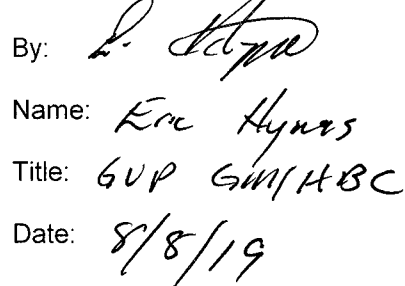 By: E. Hynes
Name: Eric Hynes
Title: GVP GM/HBC
Date: 8/8/19